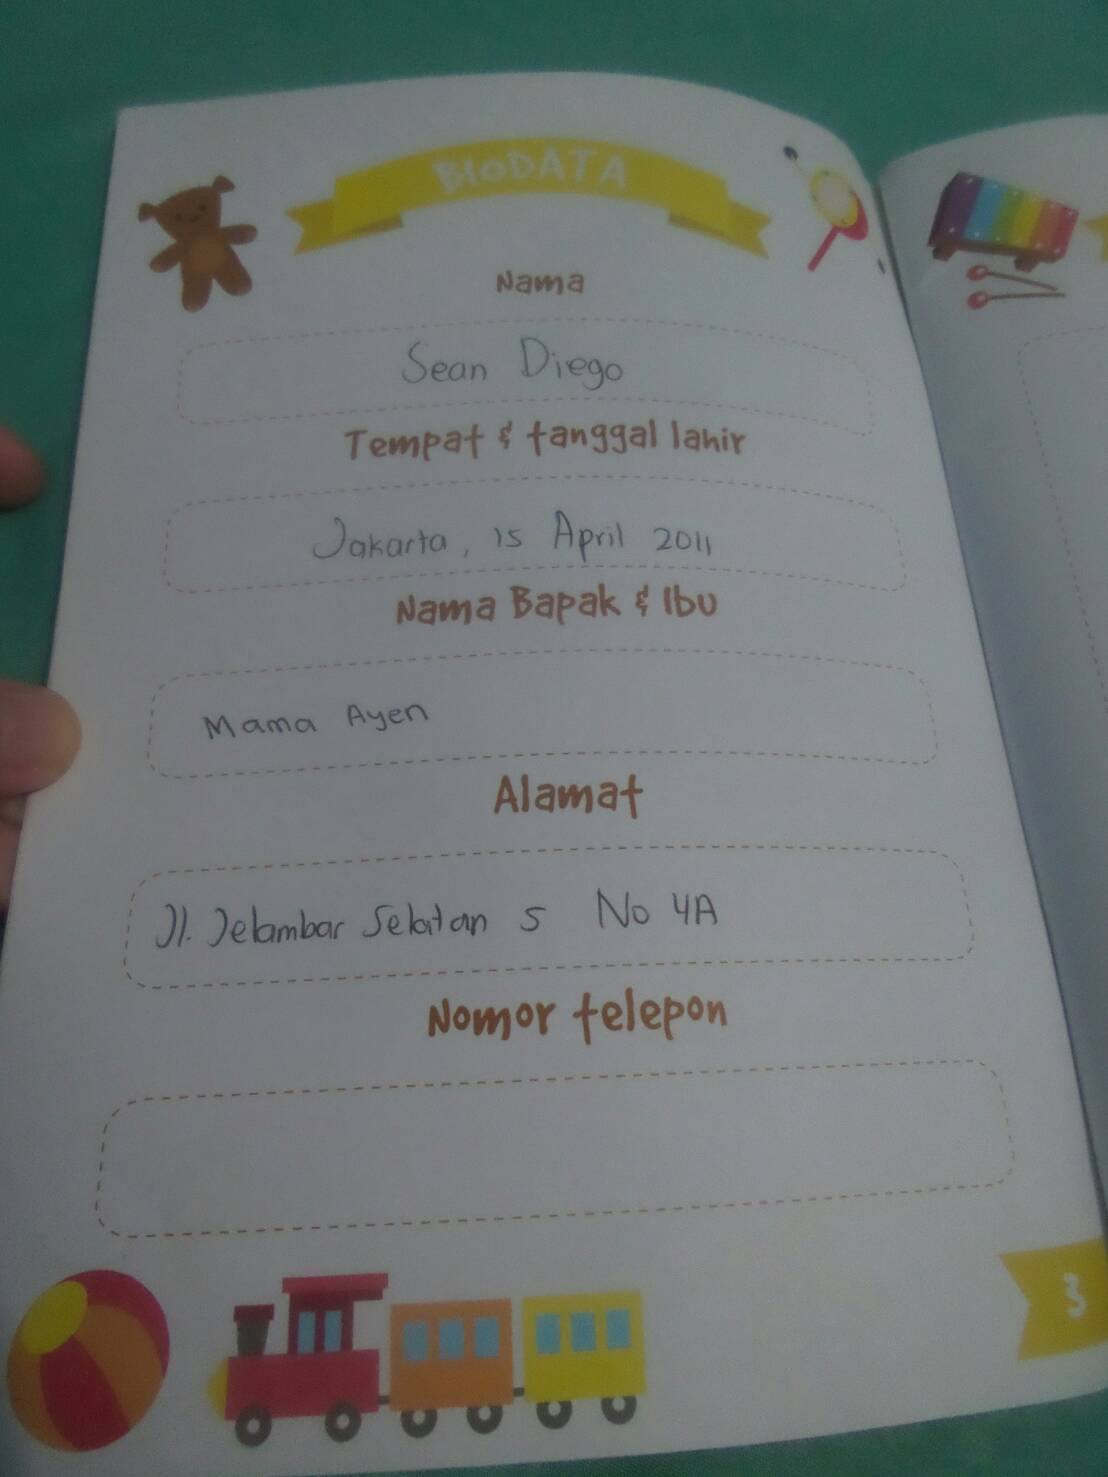 BIODATA
Nama
Sean Diego
Tempat & tanggal lahir
Jakarta, 15 April 2011
Nama Bapak & Ibu
Mama Ayen
Alamat
Jl. Jelambar Selatan 5 No 4A
Nomor telepon
3